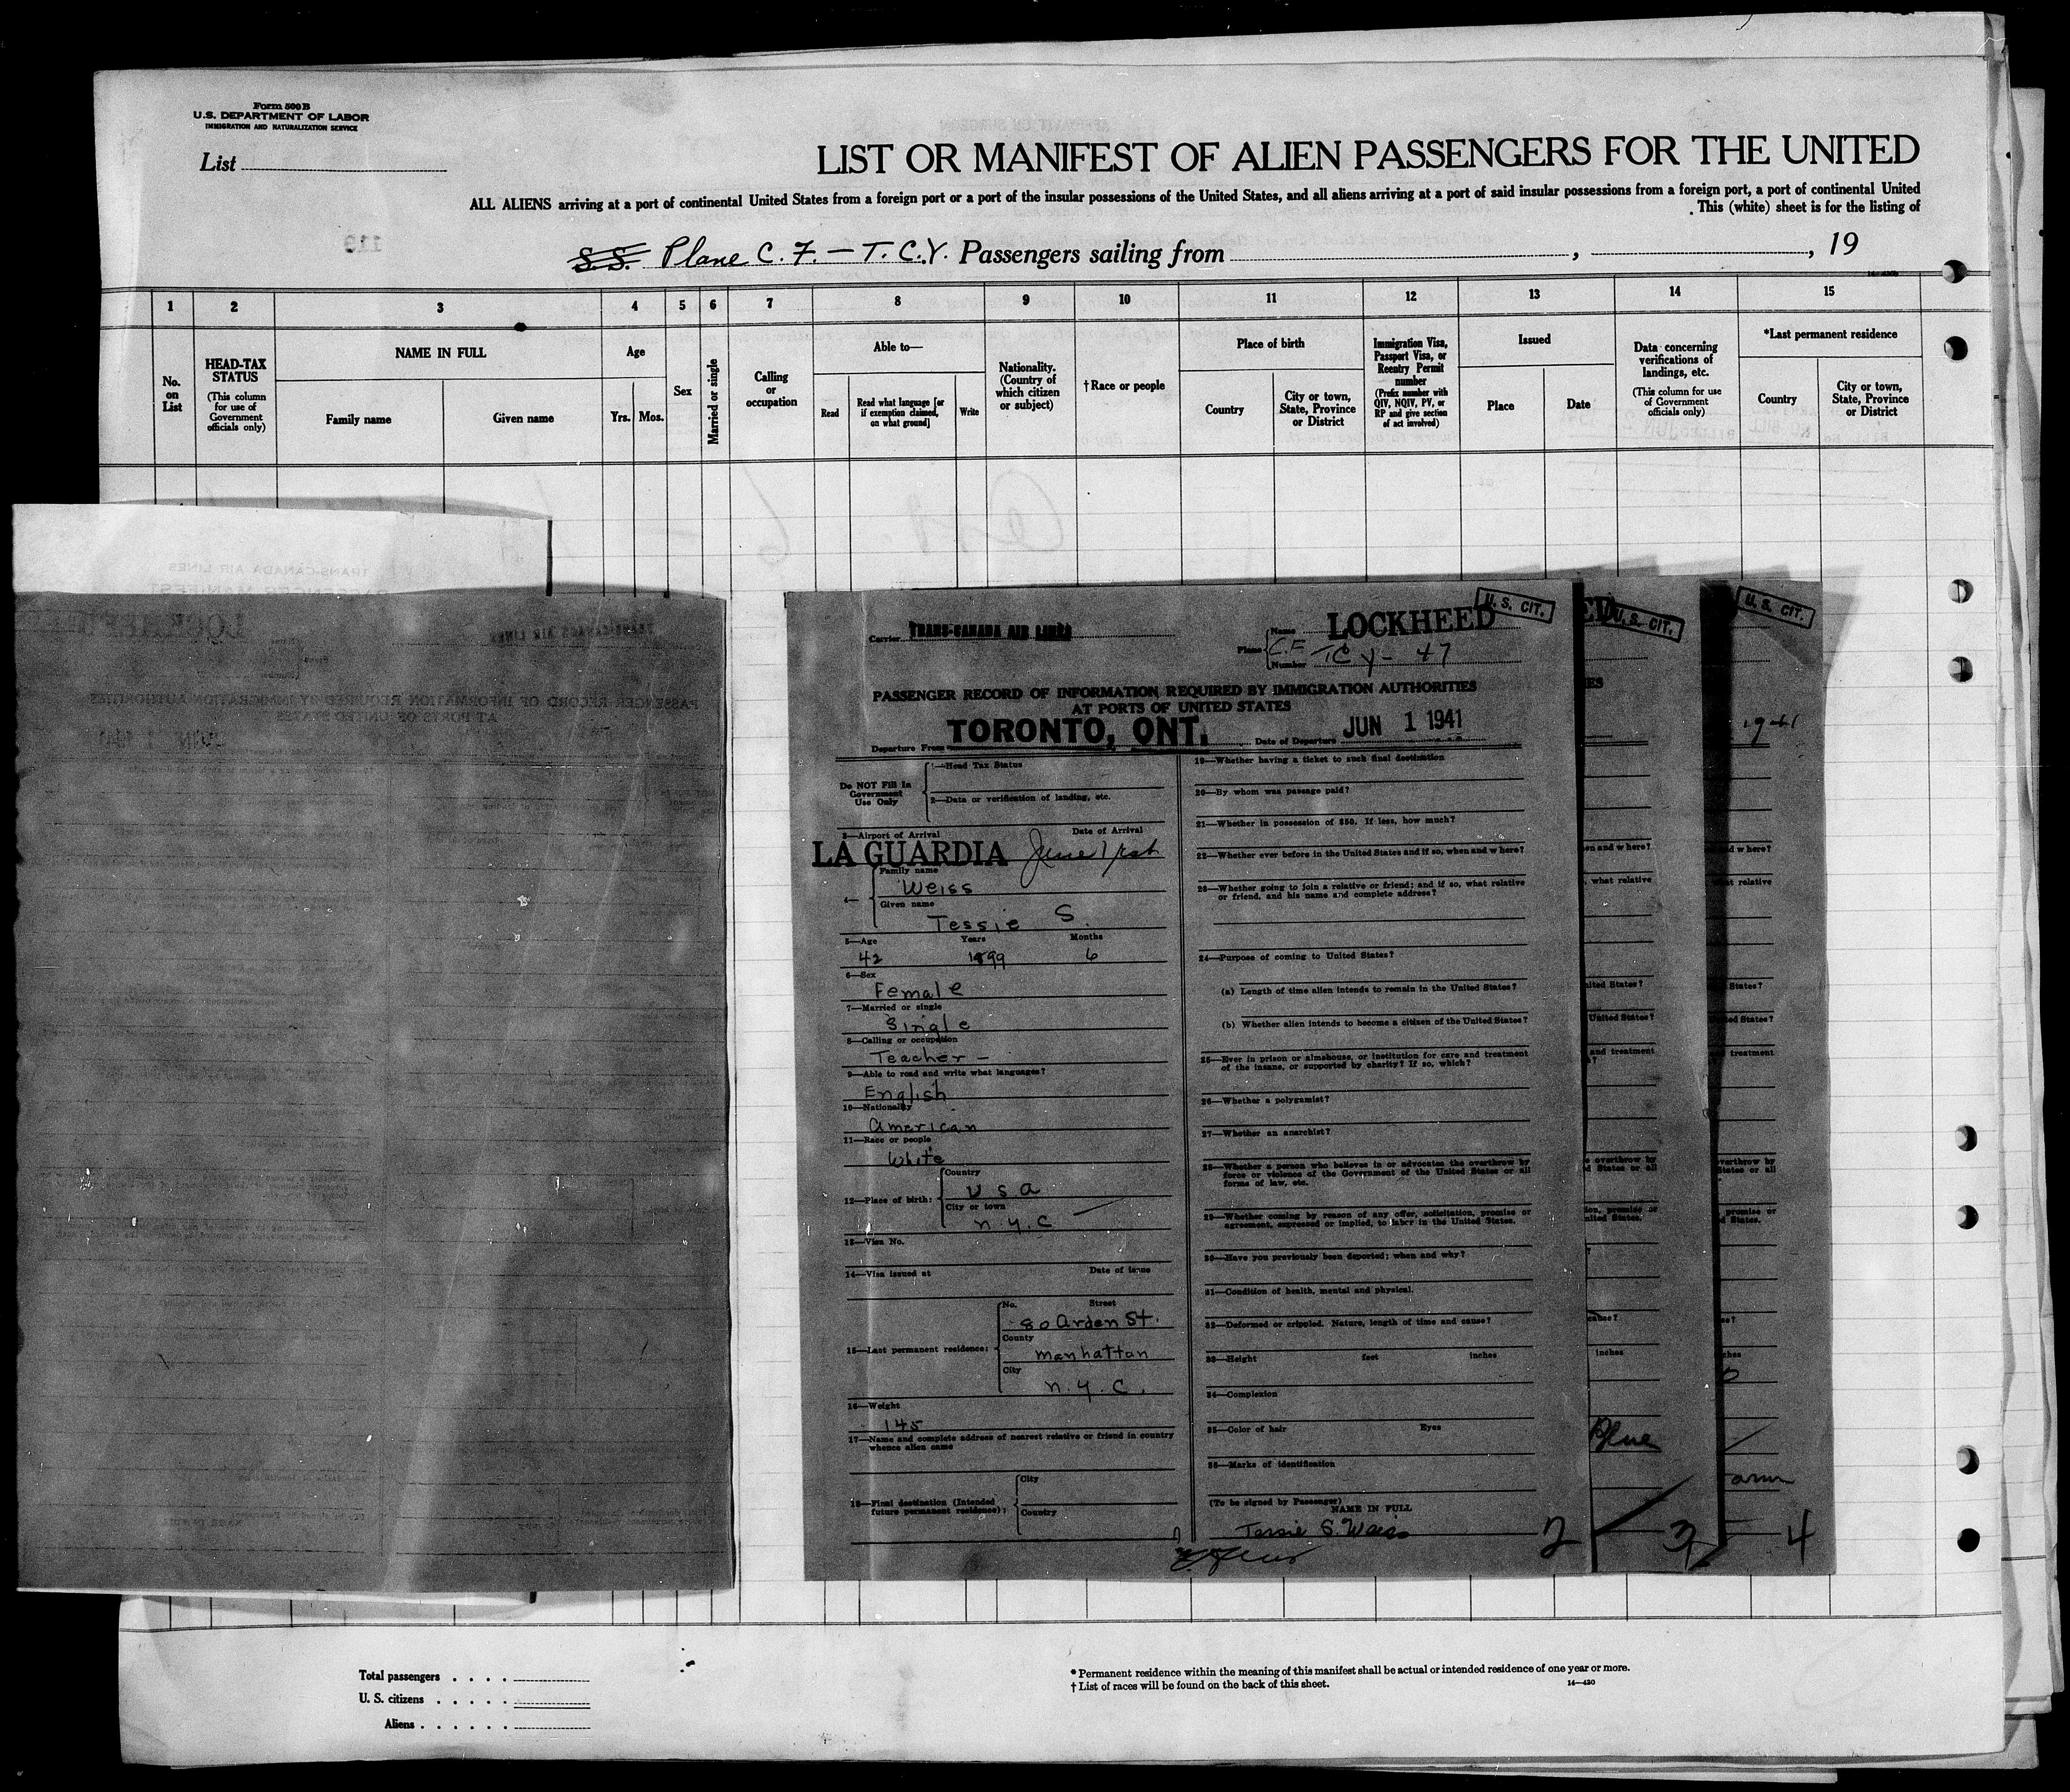 Form 500 B
U.S. DEPARTMENT OF LABOR
IMMIGRATION AND NATURALIZATION SERVICE
List
LIST OR MANIFEST OF ALIEN PASSENGERS FOR THE UNITED
ALL ALIENS arriving at a port of continental United States from a foreign port or a port of the insular possessions of the United States, and all aliens arriving at a port of said insular possessions from a foreign port, a port of continental United
This (white) sheet is for the listing of
S.S. Plane C.F. — T.C.Y. Passengers sailing from , , 19
1 2 3 4 5 6 7 8 9 10 11 12 13 14 15
No. on List
HEAD-TAX STATUS
(This column for use of Government officials only)
NAME IN FULL
Family name
Given name
Age
Yrs. Mos.
Sex
Married or single
Calling or occupation
Able to—
Read
Read what language [or if exemption claimed, on what ground]
Write
Nationality. (Country of which citizen or subject)
†Race or people
Place of birth
Country
City or town, State, Province or District
Immigration Visa, Passport Visa, or Reentry Permit number
(Prefix number with QIV, NQIV, PV, or RP and give section of act involved)
Issued
Place
Date
Data concerning verifications of landings, etc.
(This column for use of Government officials only)
*Last permanent residence
Country
City or town, State, Province or District
Carrier TRANS-CANADA AIR LINES
Plane
Name LOCKHEED
Number C.F TCY- 47
U. S. CIT.
U. S. CIT.
U. S. CIT.
PASSENGER RECORD OF INFORMATION REQUIRED BY IMMIGRATION AUTHORITIES
AT PORTS OF UNITED STATES
Departure From TORONTO, ONT. Date of Departure JUN 1 1941
Do NOT Fill In
Government
Use Only
1—Head Tax Status
2—Data or verification of landing, etc.
3—Airport of Arrival Date of Arrival
LA GUARDIA June 1rst
4—
Family name
Weiss
Given name
Tessie S.
5—Age Years Months
42 1899 6
6—Sex
Female
7—Married or single
Single
8—Calling or occupation
Teacher —
9—Able to read and write what languages?
English
10—Nationality
American
11—Race or people
White
12—Place of birth:
Country
U S A
City or town
N.Y.C
13—Visa No.
14—Visa issued at Date of issue
15—Last permanent residence:
No. Street
80 Arden St.
County
Manhattan
City
N.Y.C.
16—Weight
145
17—Name and complete address of nearest relative or friend in country
whence alien came
18—Final destination (Intended
future permanent residence):
City
Country
19—Whether having a ticket to such final destination
20—By whom was passage paid?
21—Whether in possession of $50. If less, how much?
22—Whether ever before in the United States and if so, when and where?
23—Whether going to join a relative or friend; and if so, what relative
or friend, and his name and complete address?
24—Purpose of coming to United States?
(a) Length of time alien intends to remain in the United States?
(b) Whether alien intends to become a citizen of the United States?
25—Ever in prison or almshouse, or institution for care and treatment
of the insane, or supported by charity? If so, which?
26—Whether a polygamist?
27—Whether an anarchist?
28—Whether a person who believes in or advocates the overthrow by
force or violence of the Government of the United States or all
forms of law, etc.
29—Whether coming by reason of any offer, solicitation, promise or
agreement, expressed or implied, to labor in the United States.
30—Have you previously been deported; when and why?
31—Condition of health, mental and physical.
32—Deformed or crippled. Nature, length of time and cause?
33—Height feet inches
34—Complexion
35—Color of hair Eyes
36—Marks of identification
(To be signed by Passenger)
NAME IN FULL
Tessie S. Weiss
2
3
4
1941
Blue
arm
Total passengers
U. S. citizens
Aliens
* Permanent residence within the meaning of this manifest shall be actual or intended residence of one year or more.
† List of races will be found on the back of this sheet.
14—420